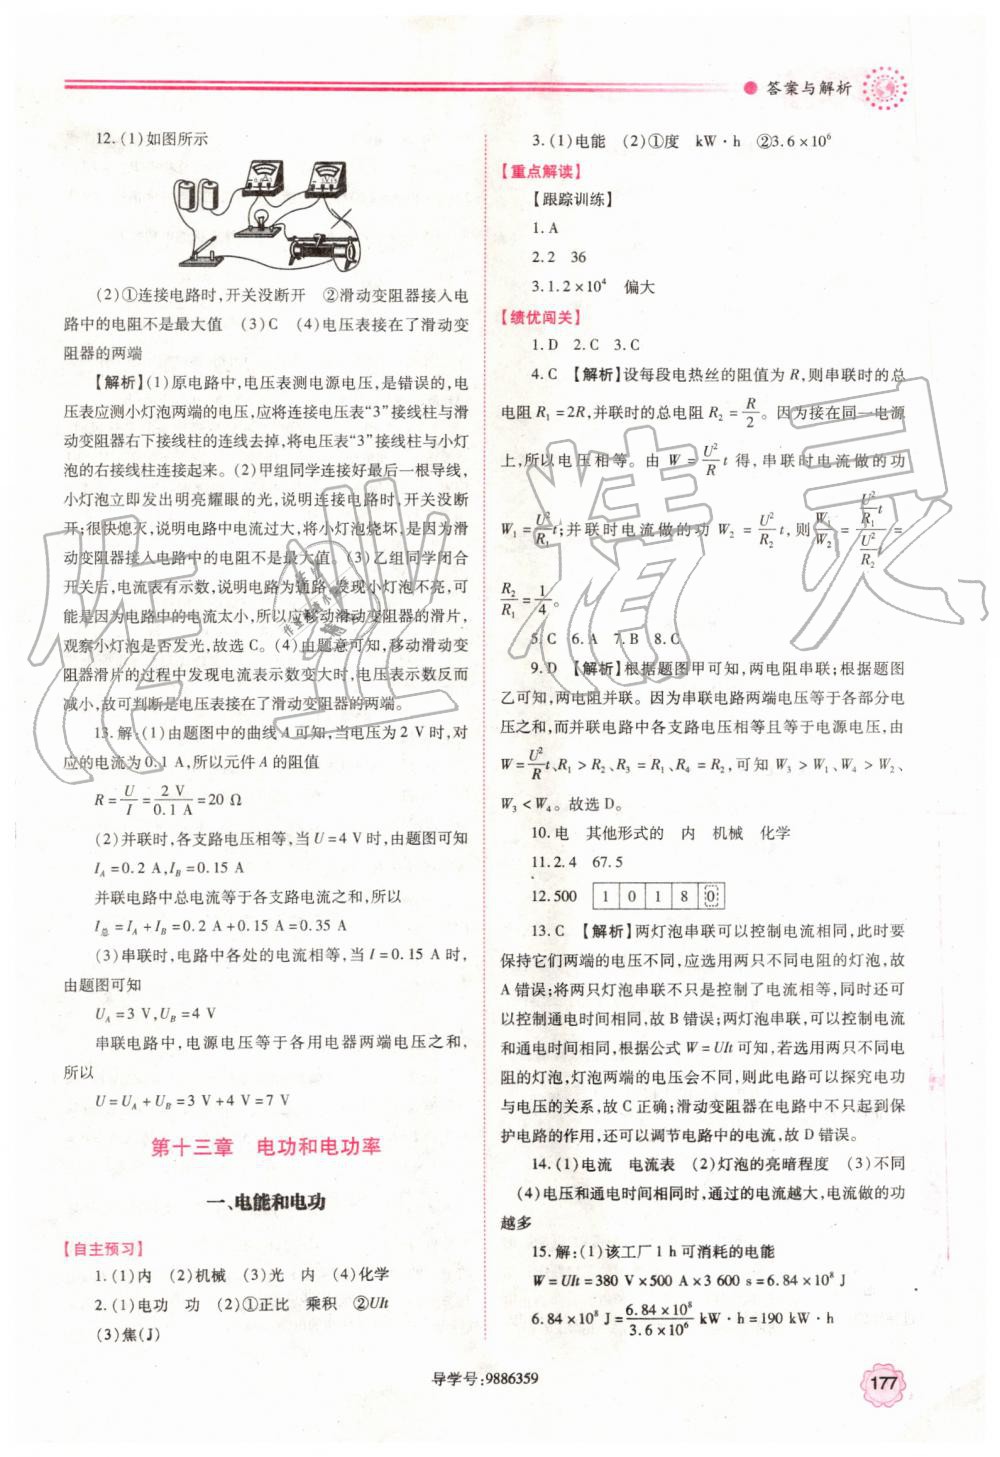 答案与解析
12.(1)如图所示
(2)①连接电路时,开关没断开　②滑动变阻器接入电
路中的电阻不是最大值　(3)C　(4)电压表接在了滑动变
阻器的两端
【解析】(1)原电路中,电压表测电源电压,是错误的,电
压表应测小灯泡两端的电压,应将连接电压表“3”接线柱与滑
动变阻器右下接线柱的连线去掉,将电压表“3”接线柱与小灯
泡的右接线柱连接起来。(2)甲组同学连接好最后一根导线,
小灯泡立即发出明亮耀眼的光,说明连接电路时,开关没断
开;很快熄灭,说明电路中电流过大,将小灯泡烧坏,是因为滑
动变阻器接入电路中的电阻不是最大值。(3)乙组同学闭合
开关后,电流表有示数,说明电路为通路,发现小灯泡不亮,可
能是因为电路中的电流太小,所以应移动滑动变阻器的滑片,
观察小灯泡是否发光,故选C。(4)由题意可知,移动滑动变
阻器滑片的过程中发现电流表示数变大时,电压表示数反而
减小,故可判断是电压表接在了滑动变阻器的两端。
13.解:(1)由题图中的曲线A可知,当电压为2 V时,对
应的电流为0.1 A,所以元件A的阻值
R=U/I=2 V/0.1 A=20 Ω
(2)并联时,各支路电压相等,当U=4 V时,由题图可知
I_A=0.2 A,I_B=0.15 A
并联电路中总电流等于各支路电流之和,所以
I_总=I_A+I_B=0.2 A+0.15 A=0.35 A
(3)串联时,电路中各处的电流相等,当I=0.15 A时,
由题图可知
U_A=3 V,U_B=4 V
串联电路中,电源电压等于各用电器两端电压之和,
所以
U=U_A+U_B=3 V+4 V=7 V
第十三章　电功和电功率
一、电能和电功
【自主预习】
1.(1)内　(2)机械　(3)光　内　(4)化学
2.(1)电功　功　(2)①正比　乘积　②UIt
(3)焦(J)
3.(1)电能　(2)①度　kW·h　②3.6×10⁶
【重点解读】
【跟踪训练】
1.A
2.2　36
3.1.2×10⁴　偏大
【绩优闯关】
1.D　2.C　3.C
4.C　【解析】设每段电热丝的阻值为R,则串联时的总
电阻R₁=2R,并联时的总电阻R₂=R/2。因为接在同一电源
上,所以电压相等。由W=U²/R t得,串联时电流做的功
W₁=U²/R₁ t;并联时电流做的功W₂=U²/R₂ t,则W₁/W₂=(U²/R₁ t)/(U²/R₂ t)=
R₂/R₁=1/4。
5.C　6.A　7.B　8.C
9.D　【解析】根据题图甲可知,两电阻串联;根据题图
乙可知,两电阻并联。因为串联电路两端电压等于各部分电
压之和,而并联电路中各支路电压相等且等于电源电压,由
W=U²/R t、R₁>R₂、R₃=R₁、R₄=R₂,可知W₃>W₁、W₄>W₂、
W₃<W₄。故选D。
10.电　其他形式的　内　机械　化学
11.2.4　67.5
12.500　1 0 1 8 0
13.C　【解析】两灯泡串联可以控制电流相同,此时要
保持它们两端的电压不同,应选用两只不同的灯泡,故
A错误;将两只灯泡串联不只是控制了电流相等,同时还可
以控制通电时间相同,故B错误;两灯泡串联,可以控制电流
和通电时间相同,根据公式W=UIt可知,若选用两只不同电
阻的灯泡,灯泡两端的电压会不同,则此电路可以探究电功
与电压的关系,故C正确;滑动变阻器在电路中不只起到保
护电路的作用,还可以调节电路中的电流,故D错误。
14.(1)电流　电流表　(2)灯泡的亮暗程度　(3)不同
(4)电压和通电时间相同时,通过的电流越大,电流做的功
越多
15.解:(1)该工厂1 h可消耗的电能
W=UIt=380 V×500 A×3 600 s=6.84×10⁸ J
6.84×10⁸ J=6.84×10⁸/3.6×10⁶ kW·h=190 kW·h
导学号:9886359
177
作业精灵